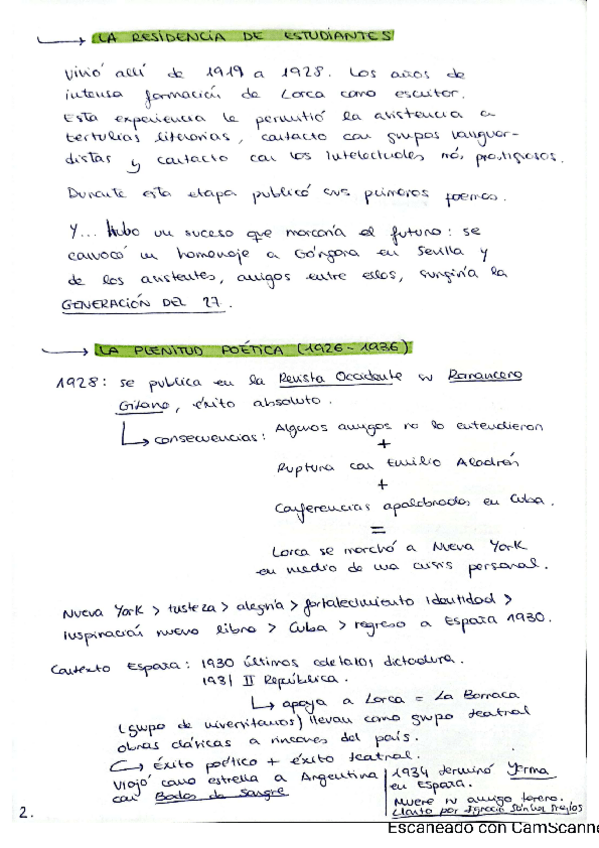 → LA RESIDENCIA DE ESTUDIANTES
vivió allí de 1919 a 1928. Los años de
intensa formación de Lorca como escritor.
Esta experiencia le permitió la asistencia a
tertulias literarias, contacto con grupos vanguar-
distas y contacto con los intelectuales más prestigiosos.
Durante esta etapa publicó sus primeros poemas.
Y... Hubo un suceso que marcaría el futuro: se
convocó un homenaje a Góngora en Sevilla y
de los asistentes, amigos entre ellos, surgiría la
GENERACIÓN DEL 27.
→ LA PLENITUD POÉTICA (1926-1936)
1928: se publica en la Revista Occidente su Romancero
Gitano, éxito absoluto.
→ consecuencias: Algunos amigos no lo entendieron
+
Ruptura con Emilio Aladrén
+
Conferencias apalabradas en Cuba.
=
Lorca se marchó a Nueva York
en medio de una crisis personal.
Nueva York > tristeza > alegría > fortalecimiento identidad >
inspiración nuevo libro > Cuba > regreso a España 1930.
Contexto España: 1930 últimos coletazos dictadura.
1931 II República.
→ apoya a Lorca = La Barraca
(grupo de universitarios) llevan como grupo teatral
obras clásicas a rincones del país.
→ éxito poético + éxito teatral.
Viajó como estrella a Argentina
con Bodas de sangre
1934 terminó Yerma
en España.
Muere su amigo torero.
Llanto por Ignacio Sánchez Mejías
2.
Escaneado con CamScanne